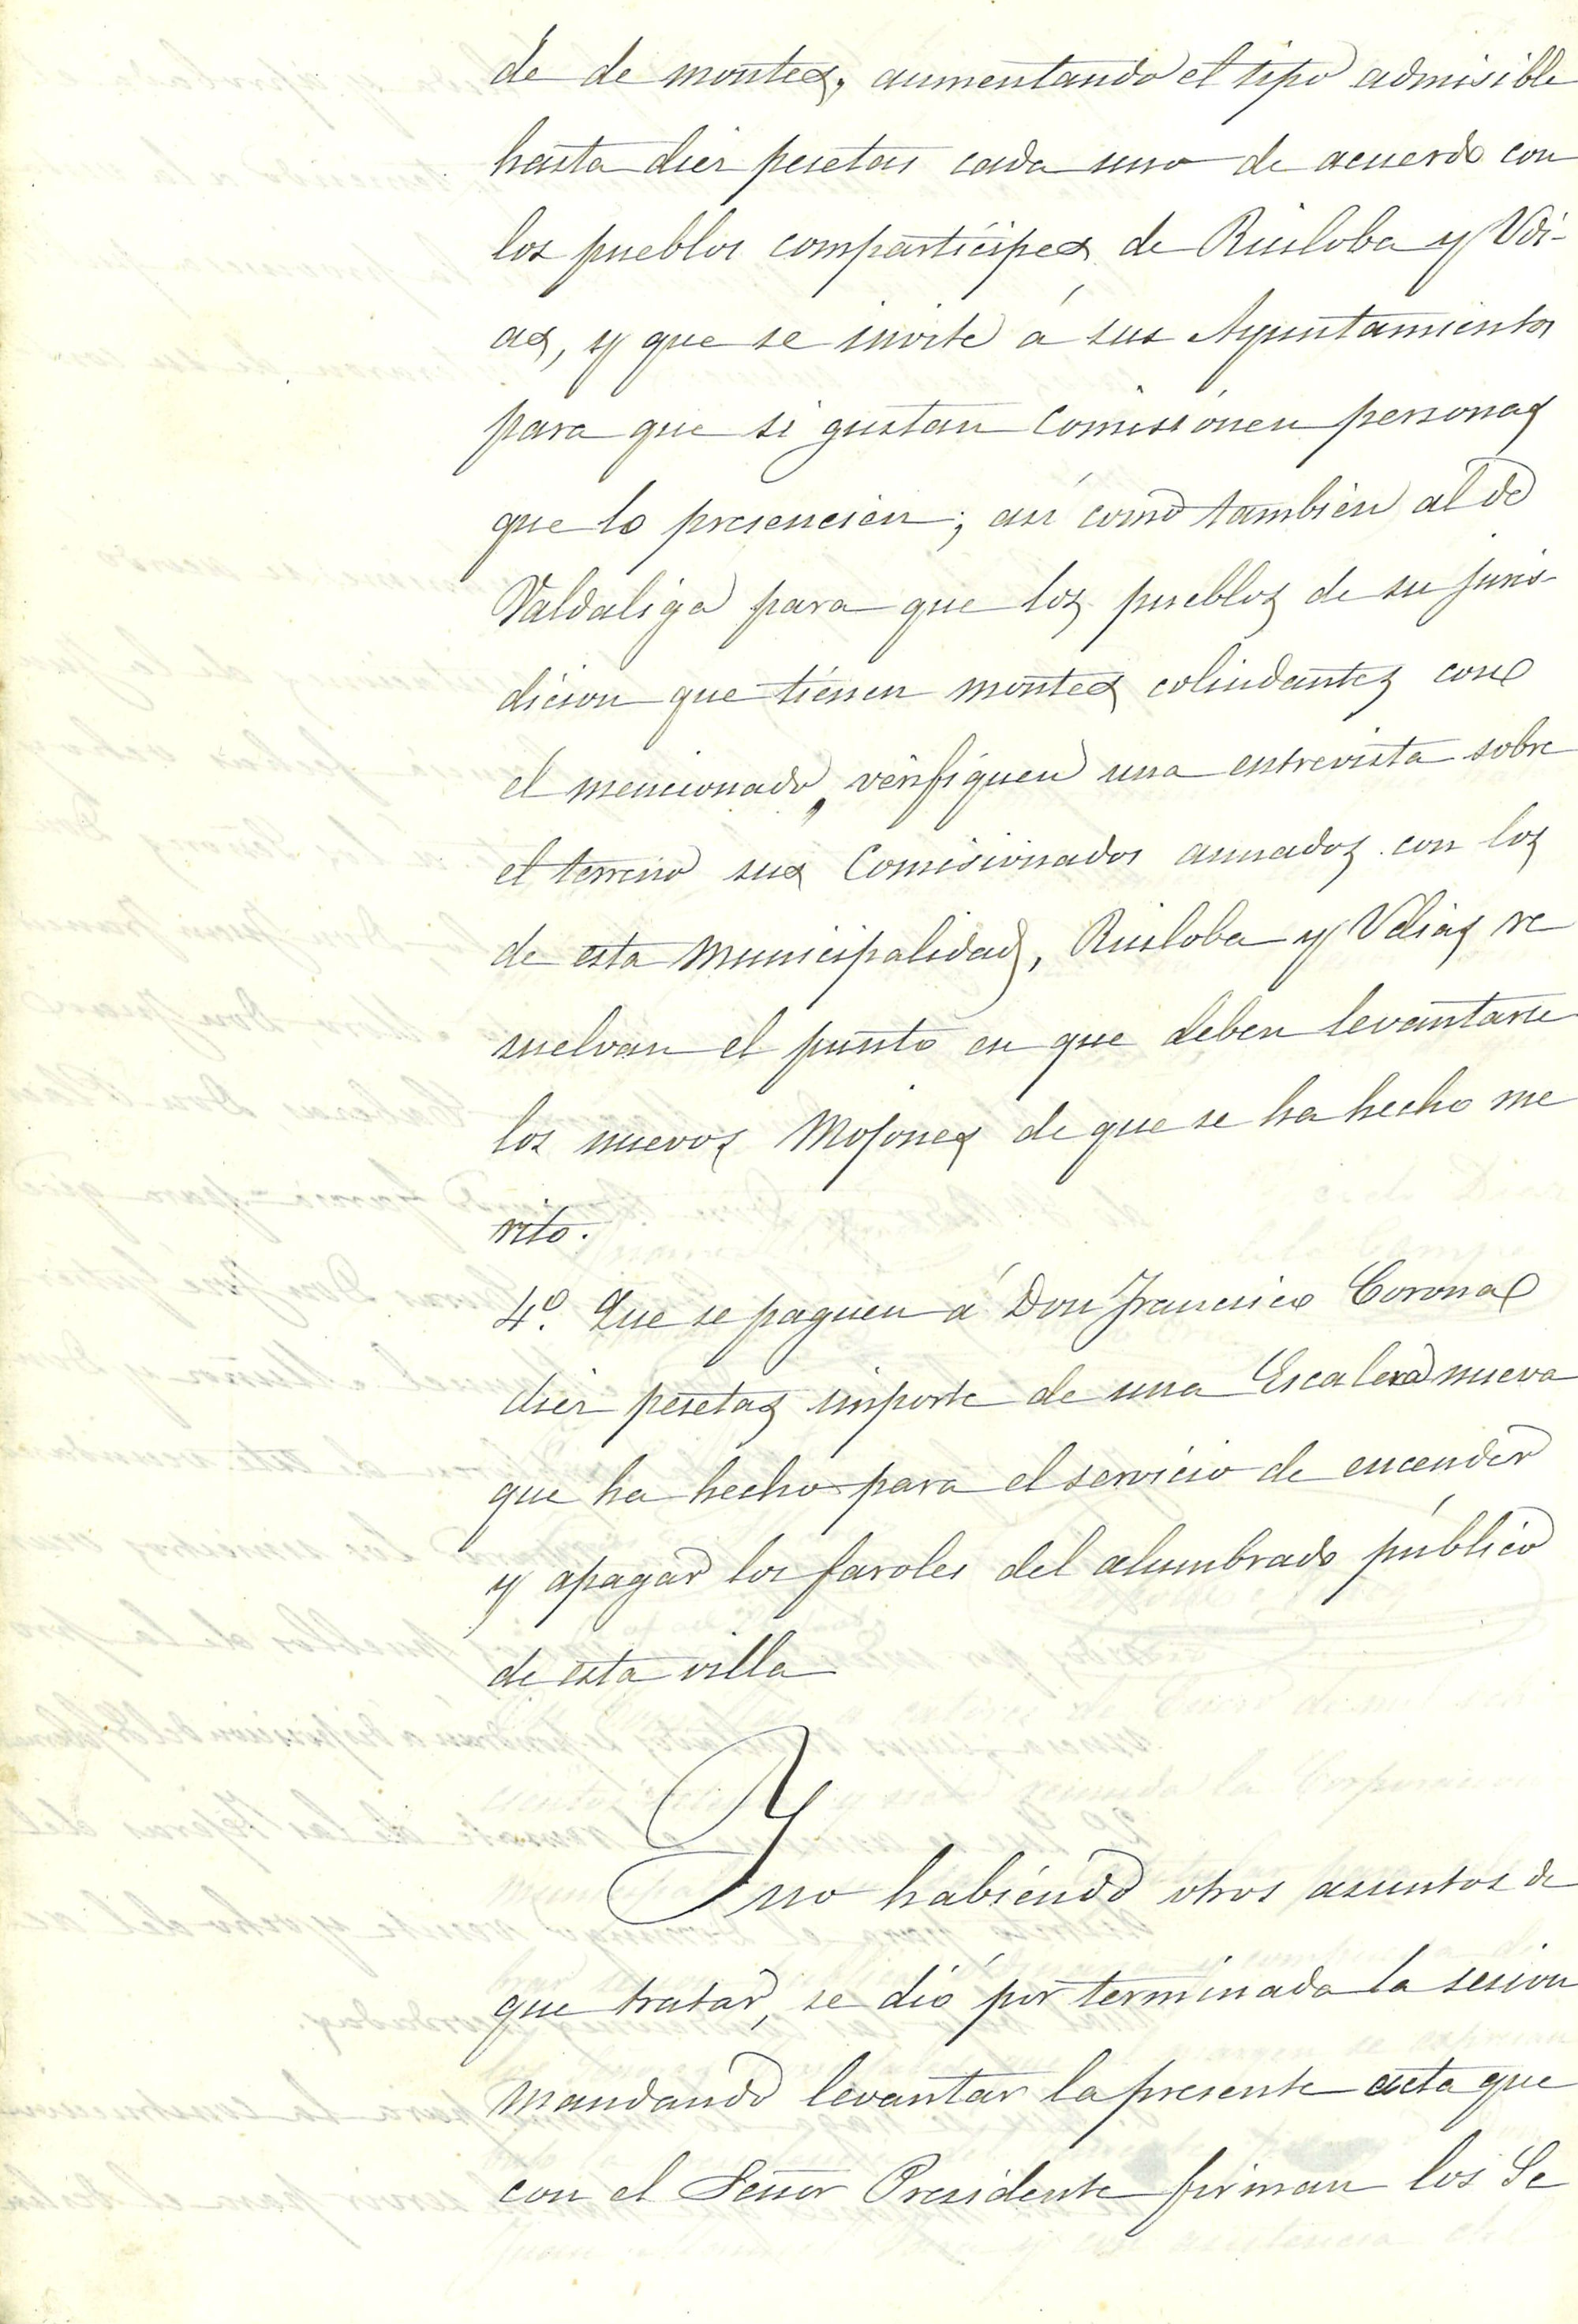 de de montes, aumentando el tipo admisible
hasta diez pesetas cada uno de acuerdo con
los pueblos compartícipes de Ruiloba y Udi-
as, y que se invite á sus Ayuntamientos
para que si gustan Comisionen personas
que lo presencien; así como tambien al de
Valdaliga para que los pueblos de su juris-
dicion que tienen montes colindantes con
el mencionado, verifiquen una entrevista sobre
el terreno sus Comisionados aunados con los
de esta Municipalidad, Ruiloba y Udias re
suelvan el punto en que deben levantarse
los nuevos Mojones de que se ha hecho me
rito.
4º. Que se paguen á Don Francisco Corona
diez pesetas importe de una Escalera nueva
que ha hecho para el servicio de encender
y apagar los faroles del alumbrado público
de esta villa
Y no habiendo otros asuntos de
que tratar, se dió por terminada la sesion
mandando levantar la presente acta que
con el Señor Presidente firman los Se